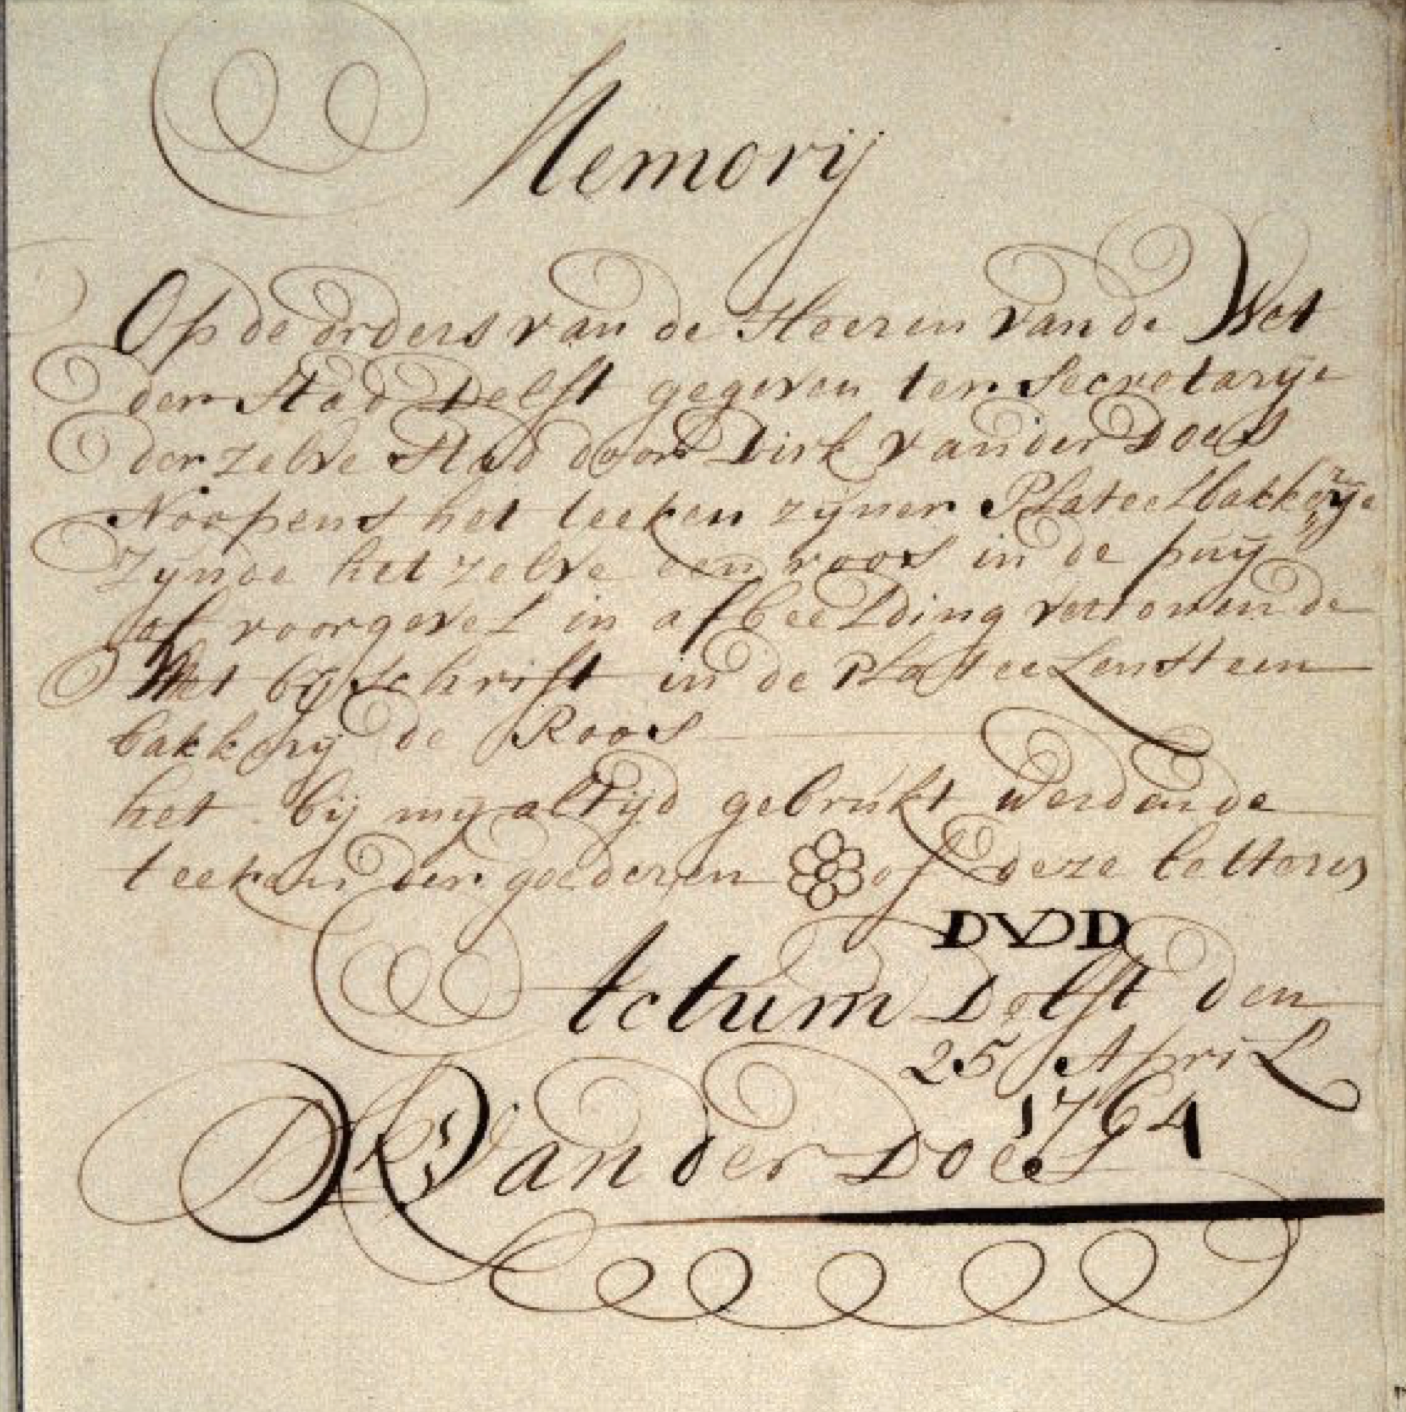 Memorij
Op de orders van de Heeren van de Wet
der Stad Delft gegeven ter Secretarije
der zelve Stad door Dirk van der Does
Noopens het teeken zijner Plateelbakkerije
Zijnde het zelve een roos in de puij
of voorgevel in afbeelding vertonende
Met bijschrift in de Plateelensteen
bakkerij de Roos
het bij mij altijd gebruikt werdende
teeken der goederen of deze letters
DVD
Actum Delft den
25 April
1764
Dk van der Does